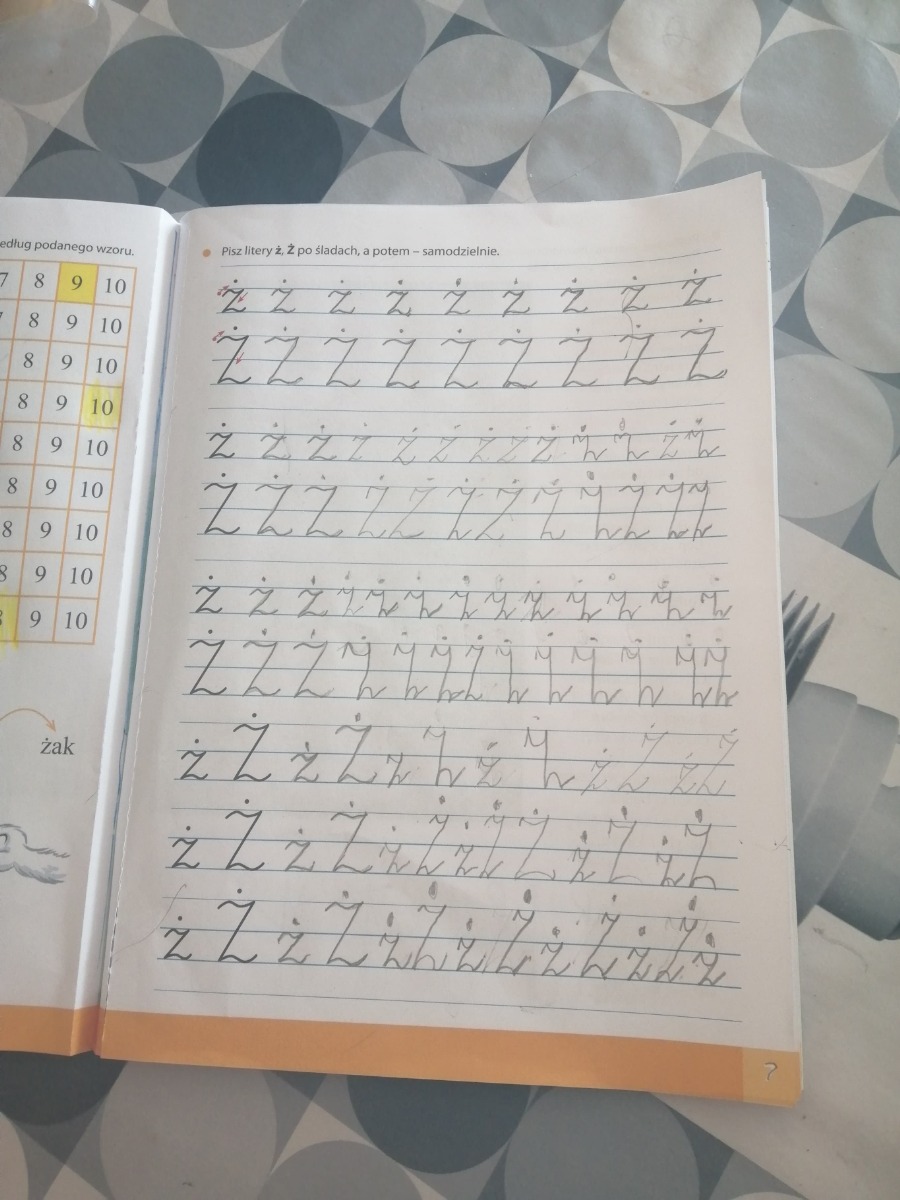 edług podanego wzoru.
7 8 9 10
8 9 10
8 9 10
8 9 10
8 9 10
8 9 10
8 9 10
8 9 10
8 9 10
żak
Pisz litery ż, Ż po śladach, a potem – samodzielnie.
ż ż ż ż ż ż ż ż ż
Ż Ż Ż Ż Ż Ż Ż Ż Ż
ż ż ż ż ż ż ż ż ż ż ż ż ż
Ż Ż Ż Ż Ż Ż Ż Ż Ż Ż Ż Ż
ż ż ż ż ż ż ż ż ż ż ż ż ż
Ż Ż Ż Ż Ż Ż Ż Ż Ż Ż Ż Ż Ż
ż Ż ż Ż ż Ż ż Ż ż Ż ż Ż
ż Ż ż Ż ż Ż ż Ż Ż ż Ż ż Ż
ż Ż ż Ż ż Ż ż Ż ż Ż ż Ż ż
7